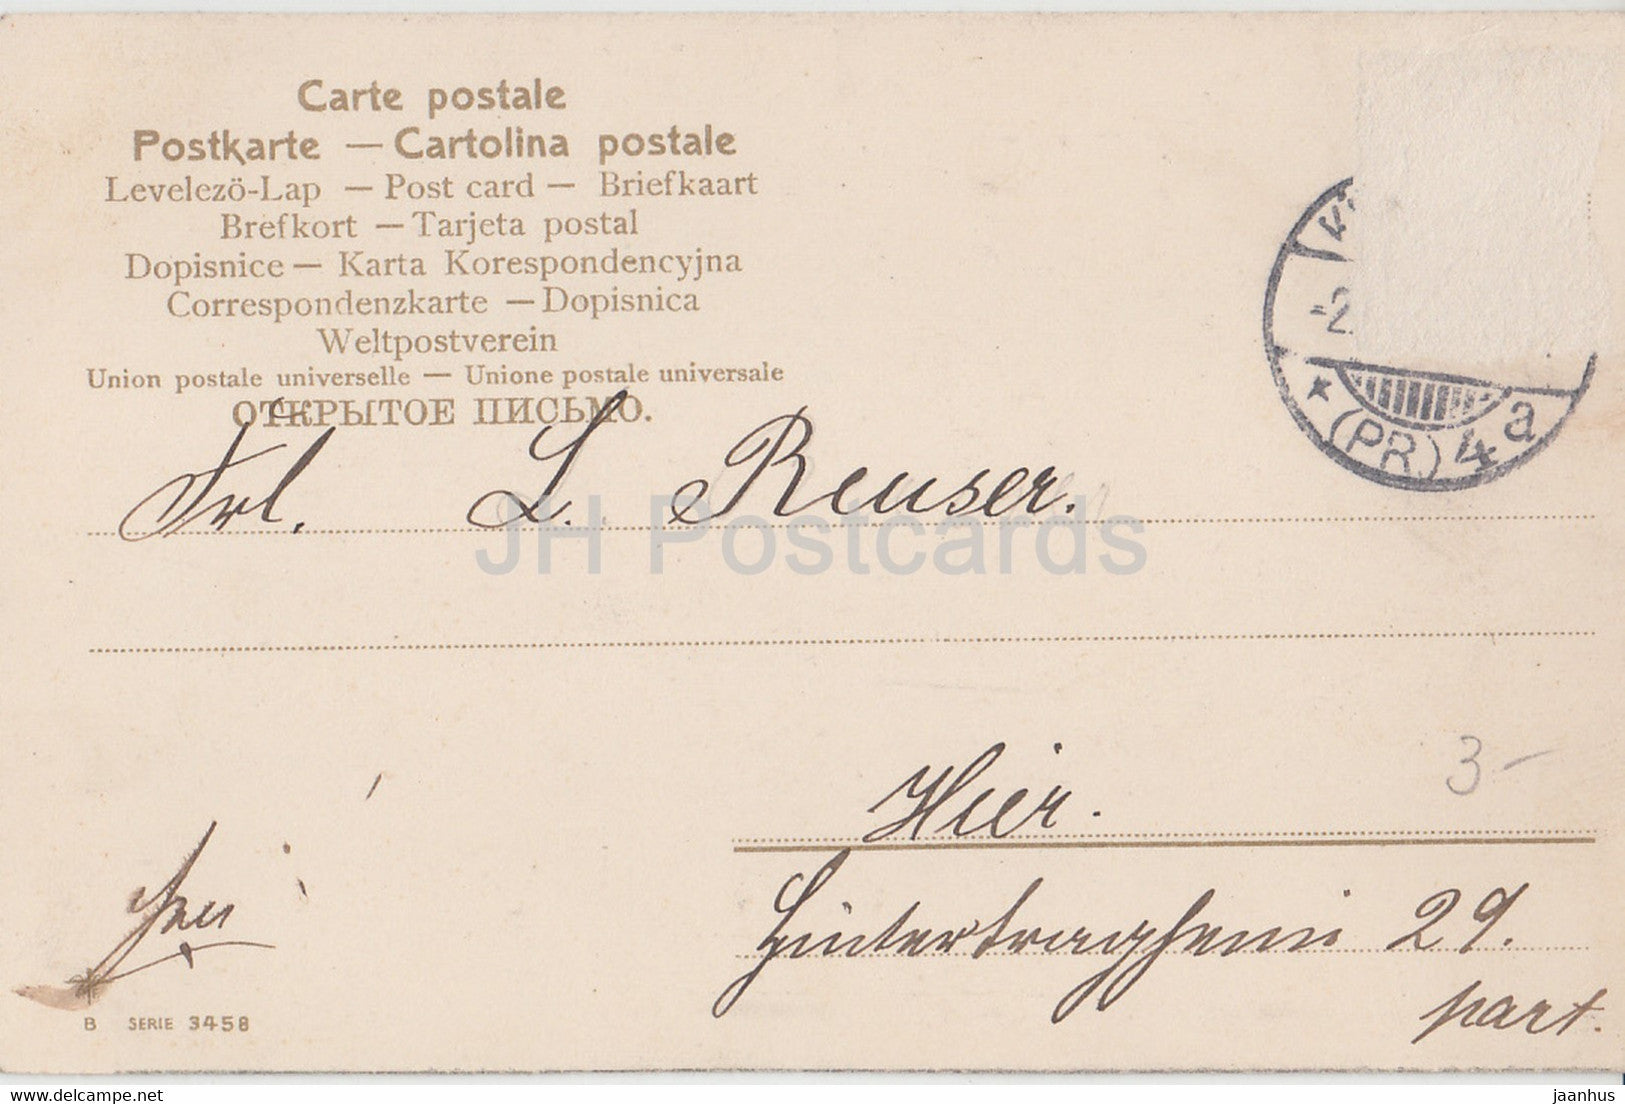 Carte postale
Postkarte — Cartolina postale
Levelezö-Lap — Post card — Briefkaart
Brefkort — Tarjeta postal
Dopisnice — Karta Korespondencyjna
Correspondenzkarte — Dopisnica
Weltpostverein
Union postale universelle — Unione postale universale
ОТКРЫТОЕ ПИСЬМО.
-2.
(PR.) 4a
Frl. L. Reuser.
JH Postcards
3-
Hier.
29.
part.
B SERIE 3458
delcampe.net
jaanhus